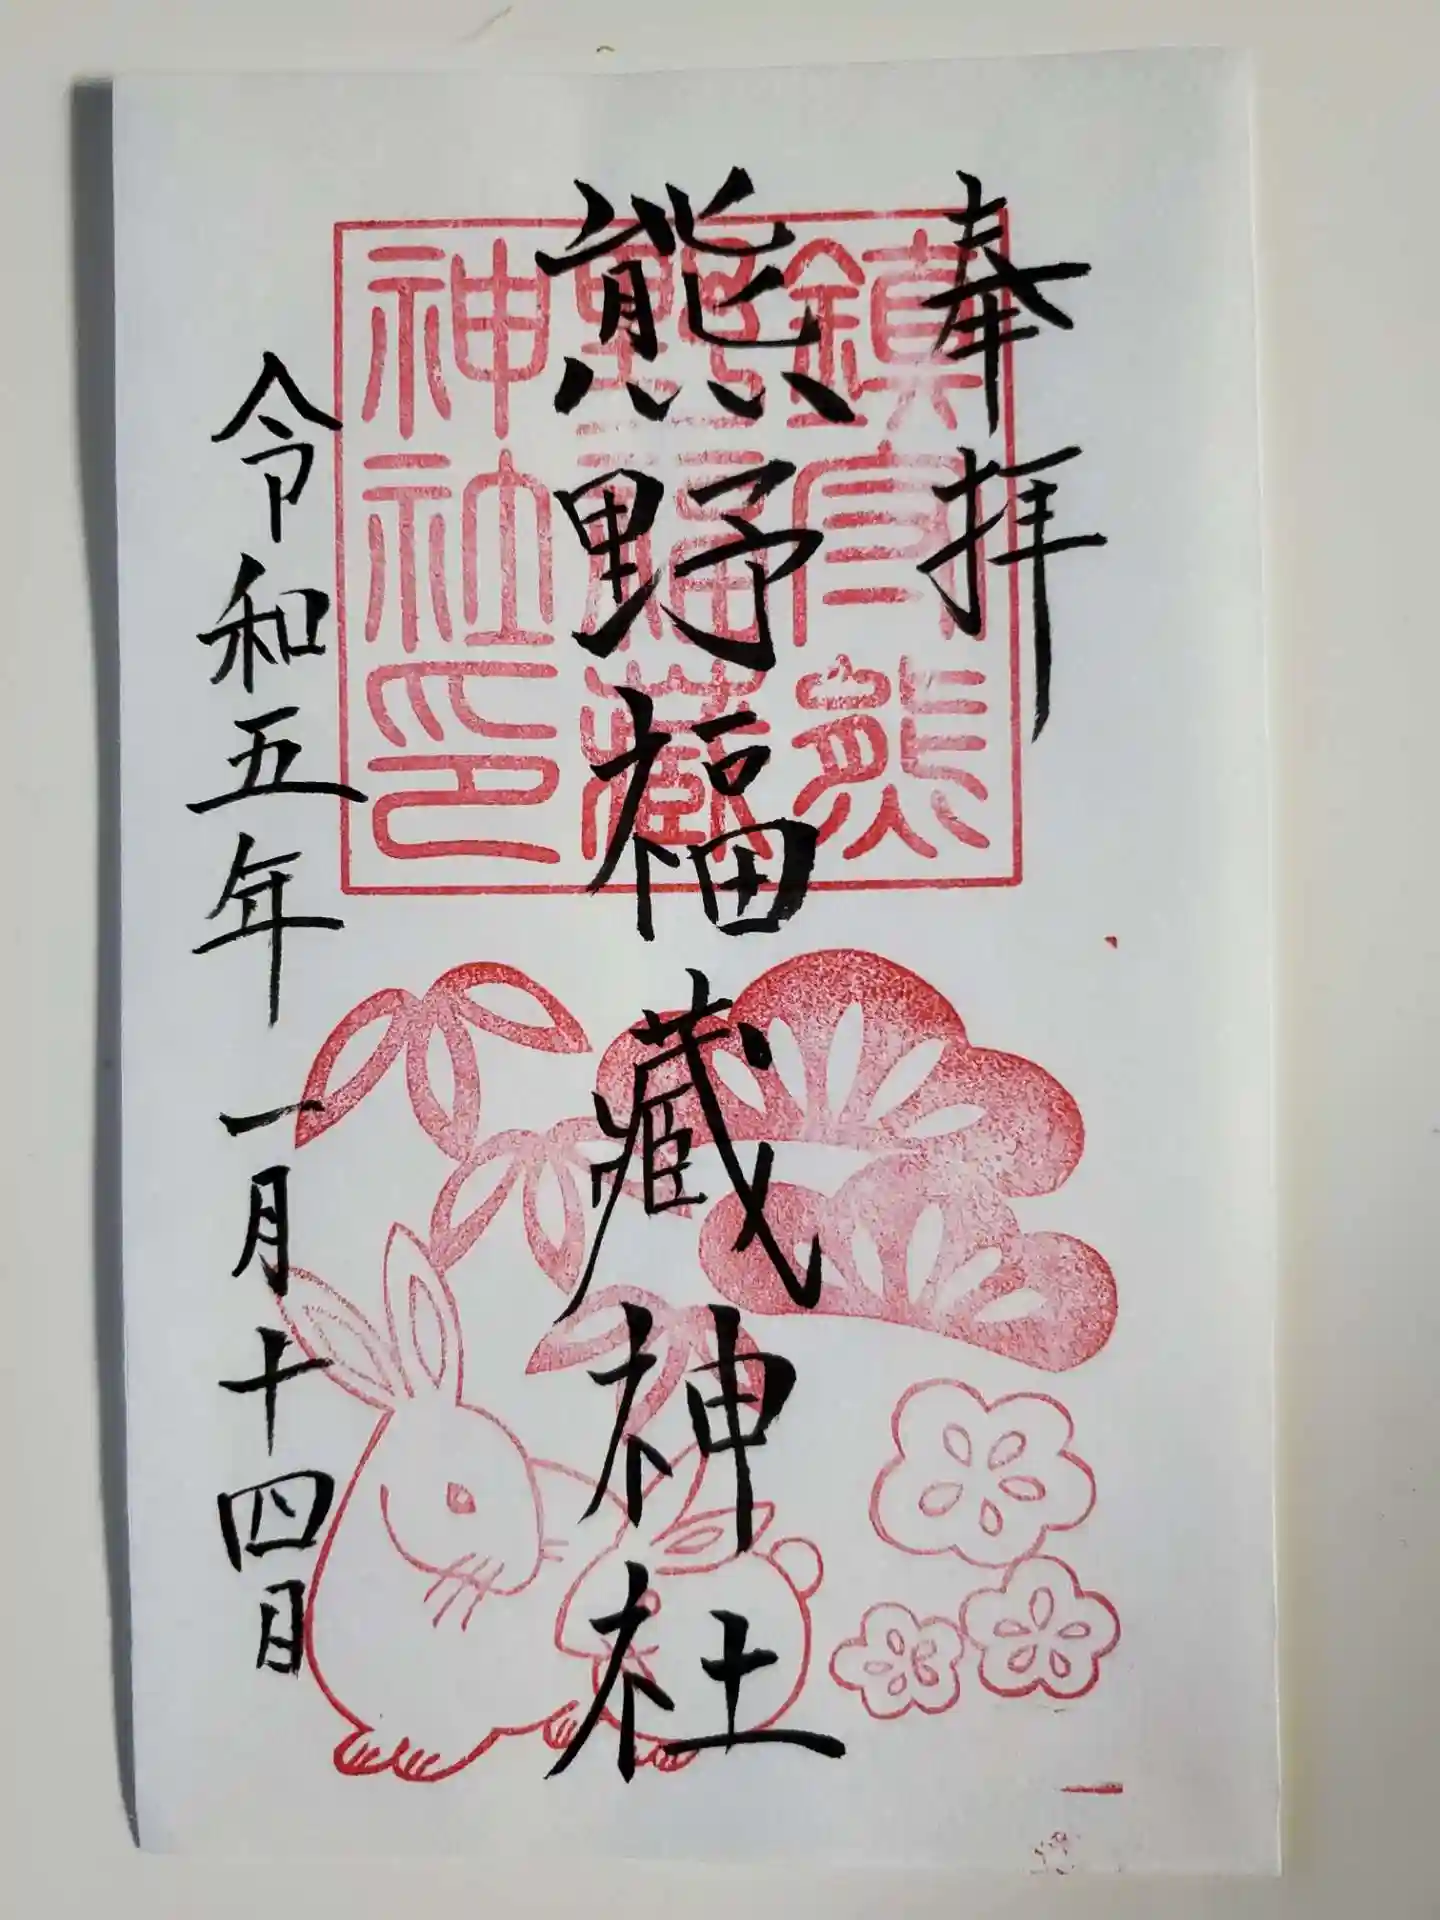 奉拝
熊野福蔵神社
令和五年一月十四日
鎮守熊
野福蔵
神社印